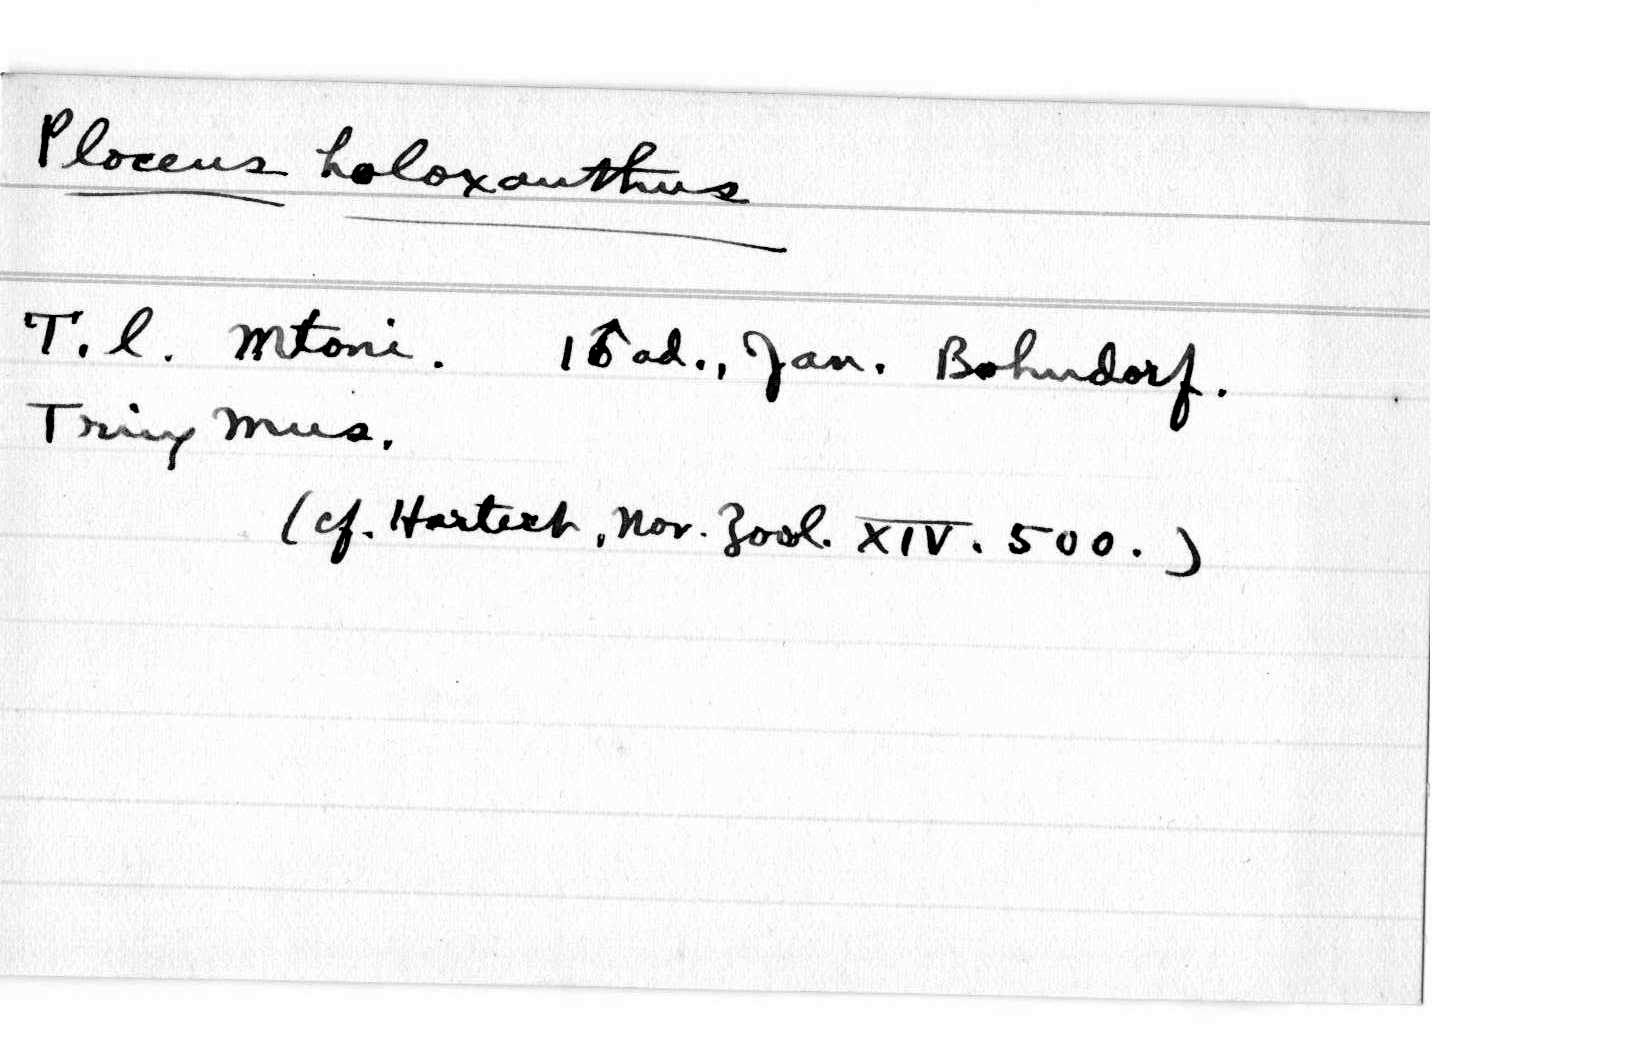 Ploceus holoxanthus
T. l. Mtoni. 1 ♂ ad., Jan. Bohndorf.
Tring Mus.
(cf. Hartert, Nov. Zool. XIV. 500.)